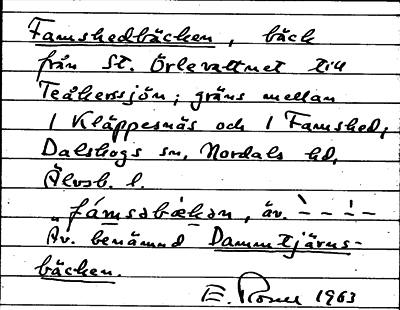 Famshedbäcken, bäck
från St. Örlevattnet till
Teåkerssjön; gräns mellan
1 Kläppesnäs och 1 Famshed,
Dalskogs sn, Nordals hd,
Älvsb. l.
„fámsəbækən, äv. – –
Äv. benämnd Dammtjärns-
bäcken.
E. 1963